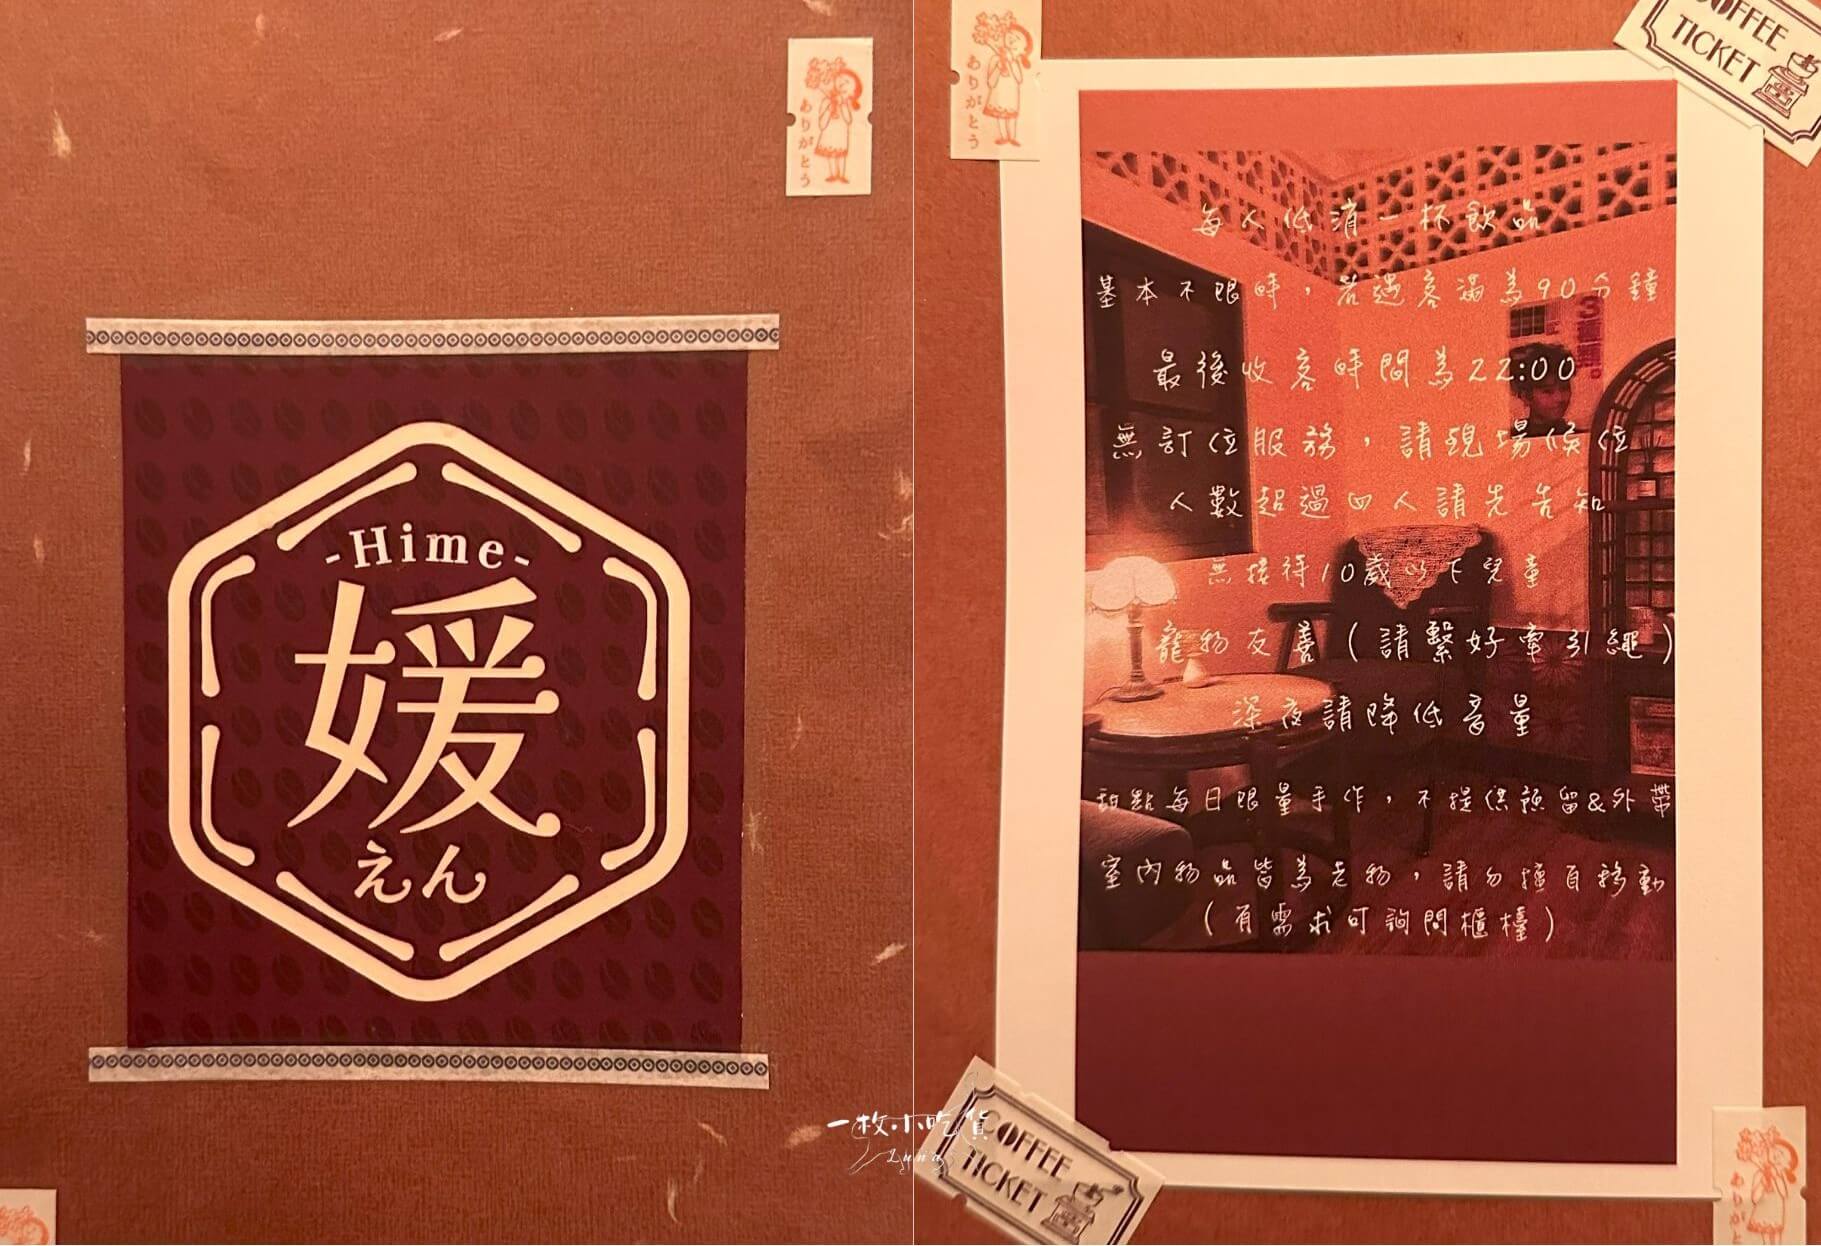 ありがとう
-Hime-
媛
えん
一枚小吃貨
Luna
ありがとう
COFFEE
TICKET
每人低消一杯飲品
基本不限時，若遇客滿為90分鐘
最後收客時間為22:00
無訂位服務，請現場候位
人數超過四人請先告知
無接待10歲以下兒童
寵物友善（請繫好牽引繩）
深夜請降低音量
甜點每日限量手作，不提供預留&外帶
室內物品皆為老物，請勿擅自移動
（有需求可詢問櫃檯）
COFFEE
TICKET
ありがとう